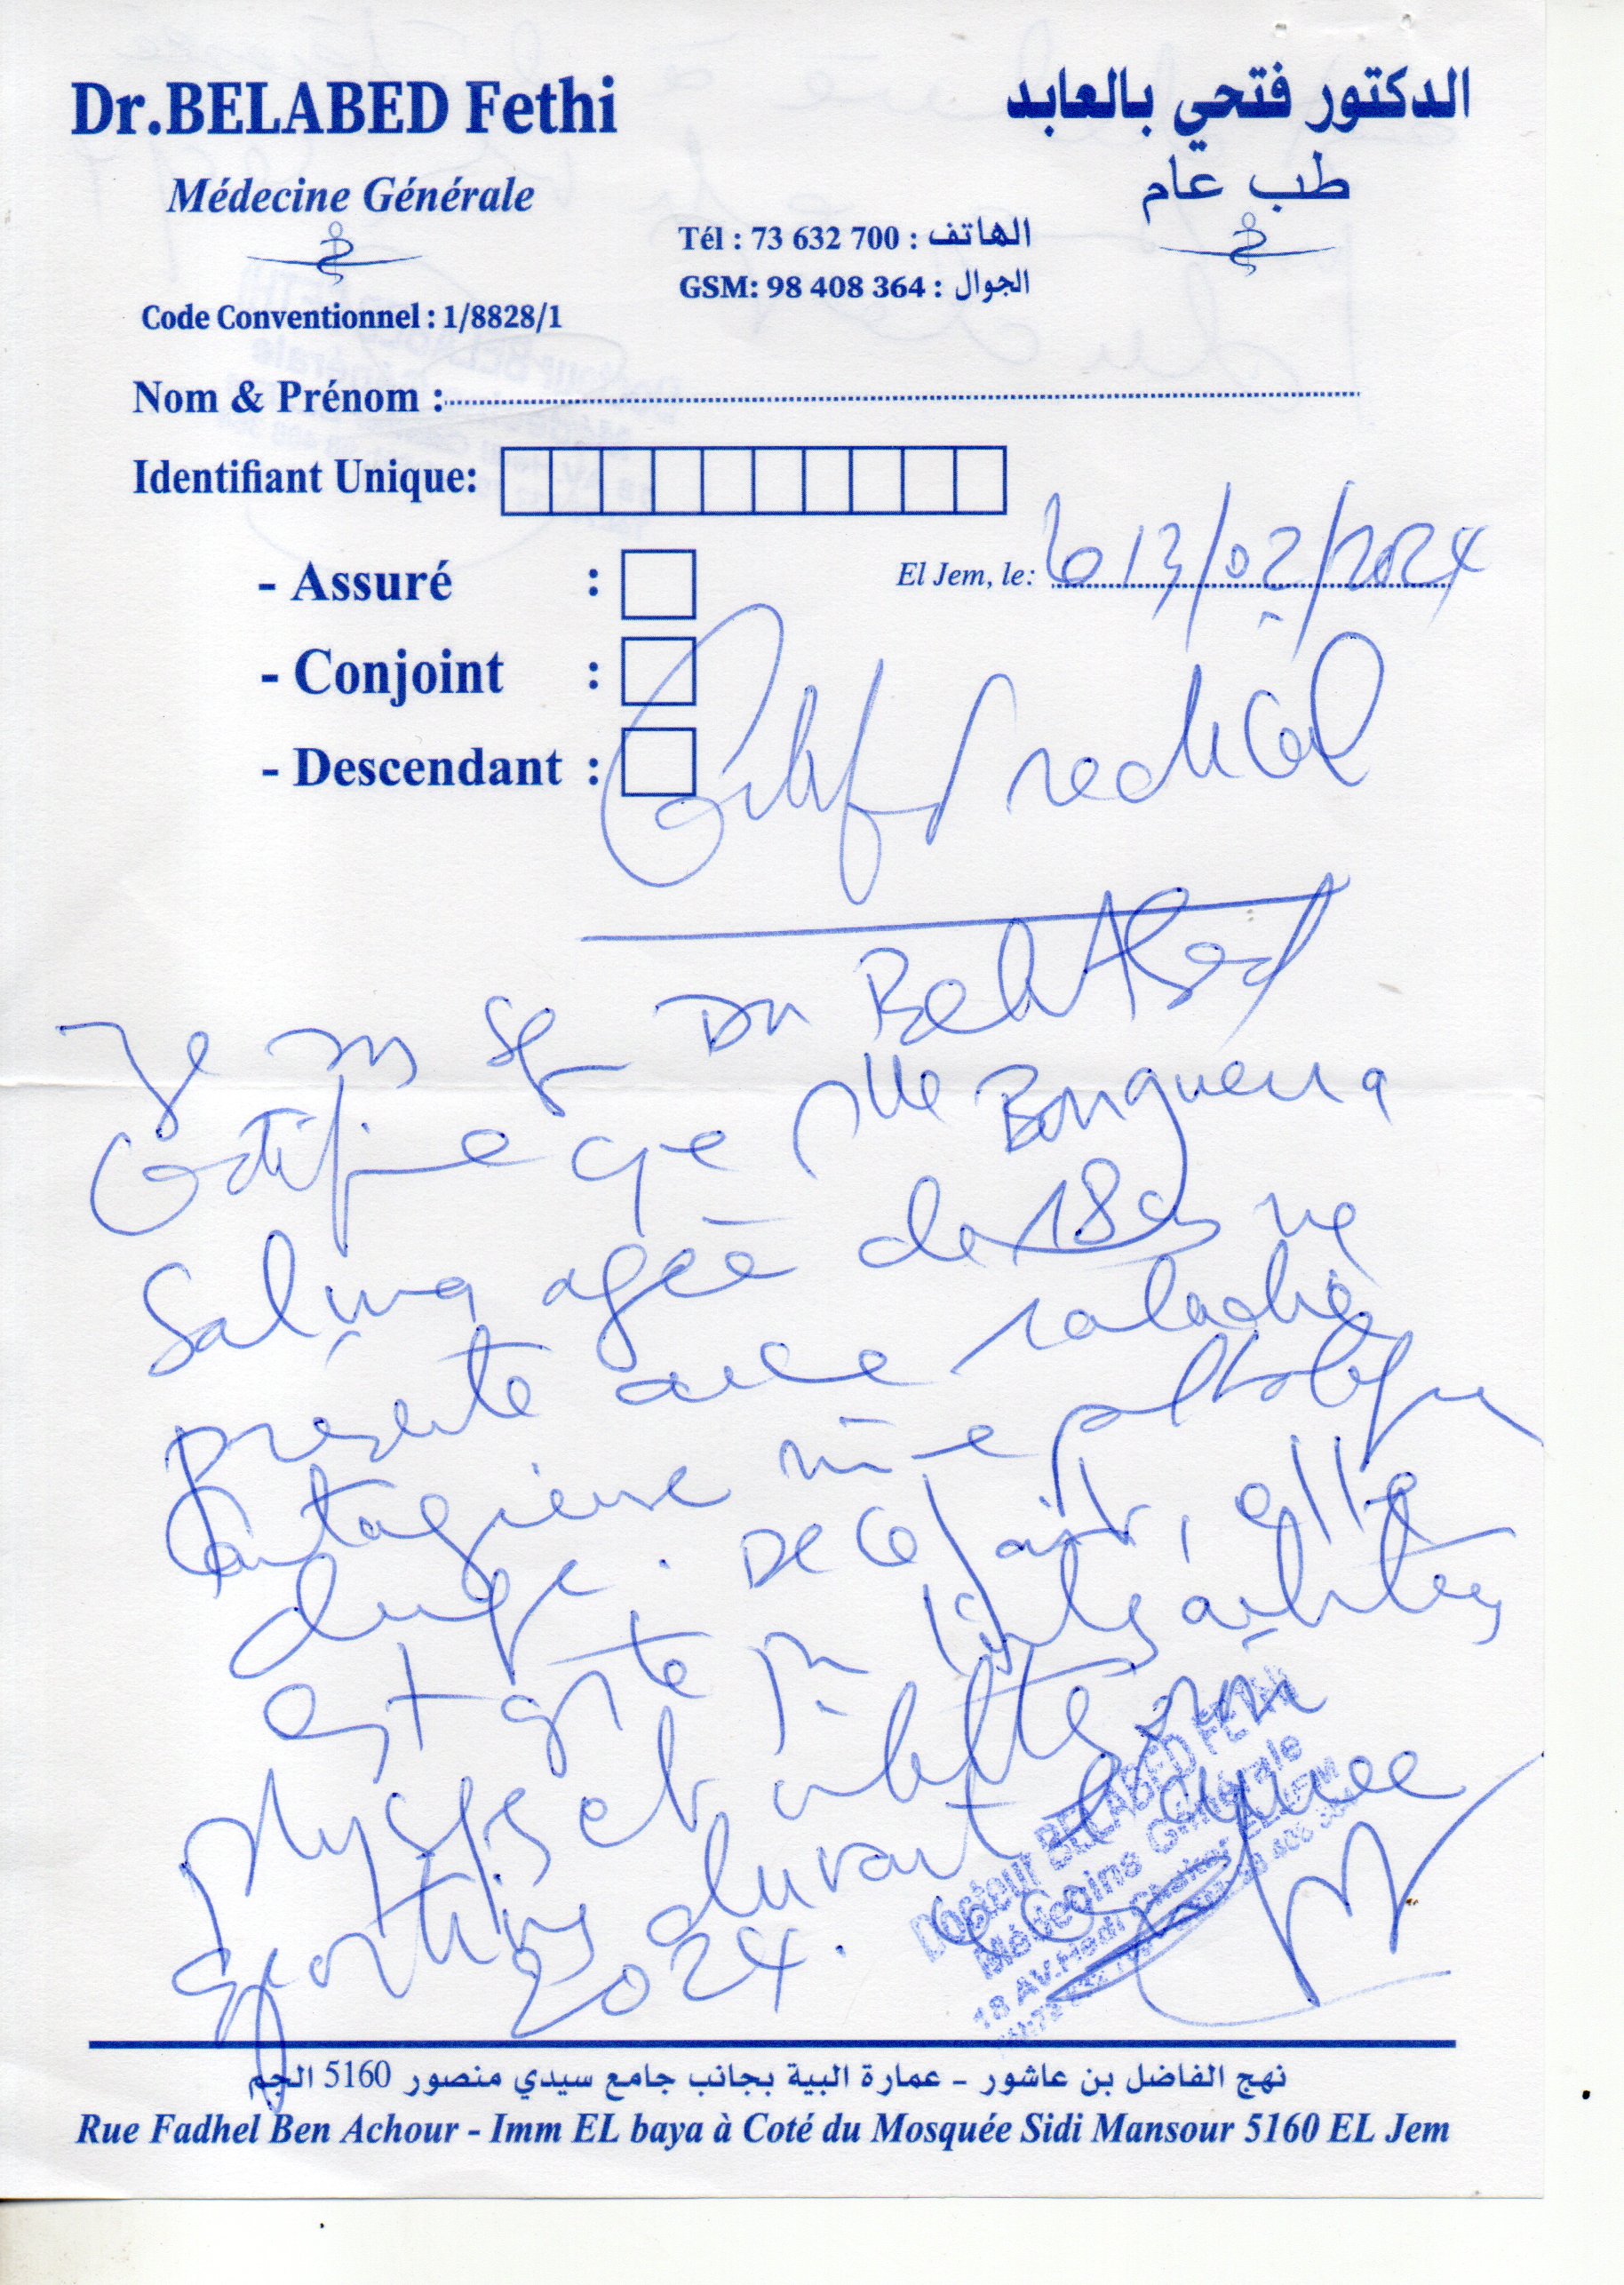 Dr.BELABED Fethi
الدكتور فتحي بالعابد
Médecine Générale
طب عام
Tél : 73 632 700 : الهاتف
GSM: 98 408 364 : الجوال
Code Conventionnel : 1/8828/1
Nom & Prénom :
Identifiant Unique:
- Assuré :
El Jem, le: 13/02/2024
- Conjoint :
- Descendant :
Certificat medical
Je Dr BelAbed
Certifie que Mlle Bouguerra
Salma agée de 18 ans ne
presente aucune maladie
contagieuse ni
. De ce fait, elle
est apte
physiques et
sportives durant l'année
2024.
Docteur BELABED FETHI
Médecine Générale
18 AV. Hedi Chaker ELJEM
نهج الفاضل بن عاشور - عمارة البية بجانب جامع سيدي منصور 5160 الجم
Rue Fadhel Ben Achour - Imm EL baya à Coté du Mosquée Sidi Mansour 5160 EL Jem